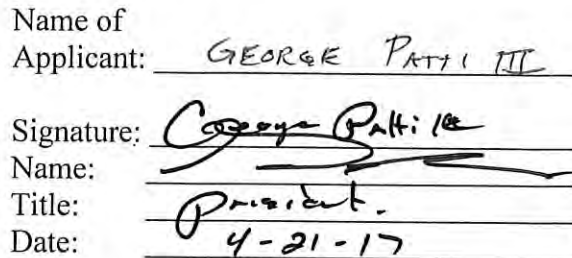 Name of
Applicant: GEORGE PATTI III
Signature: George Patti III
Name:
Title: President.
Date: 4-21-17